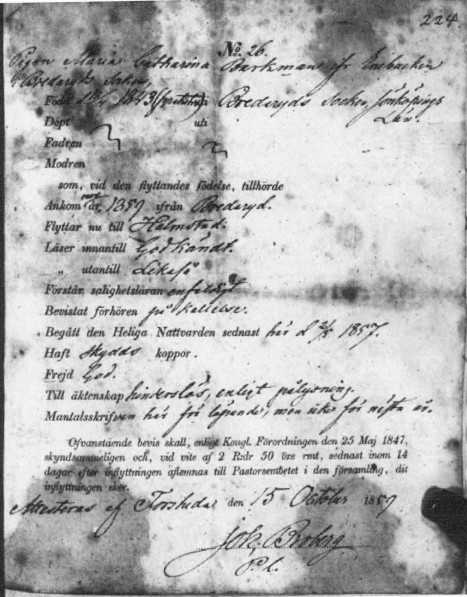 224.
No. 26.
Pigan Maria Catharina Barkman af Enebacken
Bredaryds Socken,
Född 1843 uti Bredaryds Socken, Jönköpings
Döpt uti Län.
Fadren
Modren
som, vid den flyttandes födelse, tillhörde
Ankom år 1857 ifrån Bredaryd.
Flyttar nu till Halmstad.
Läser innantill Godkändt.
" utantill Likaså
Förstår salighetsläran enfaldigt
Bevistat förhören på kallelse.
Begått den Heliga Nattvarden sednast här d 1857.
Haft skydds koppor.
Frejd God.
Till äktenskap hinderslös, enligt pålysning.
Mantalsskrifven här för löpande, men icke för nästa år.
Ofvanstående bevis skall, enligt Kongl. Förordningen den 25 Maj 1847,
skyndsammeligen och, vid vite af 2 R:dr 50 öre rmt, sednast inom 14
dagar efter inflyttningen aflemnas till Pastorsembetet i den församling, dit
inflyttningen sker.
Attesteras af Torskinge den 15 October 1857
Joh. Broberg
P. L.